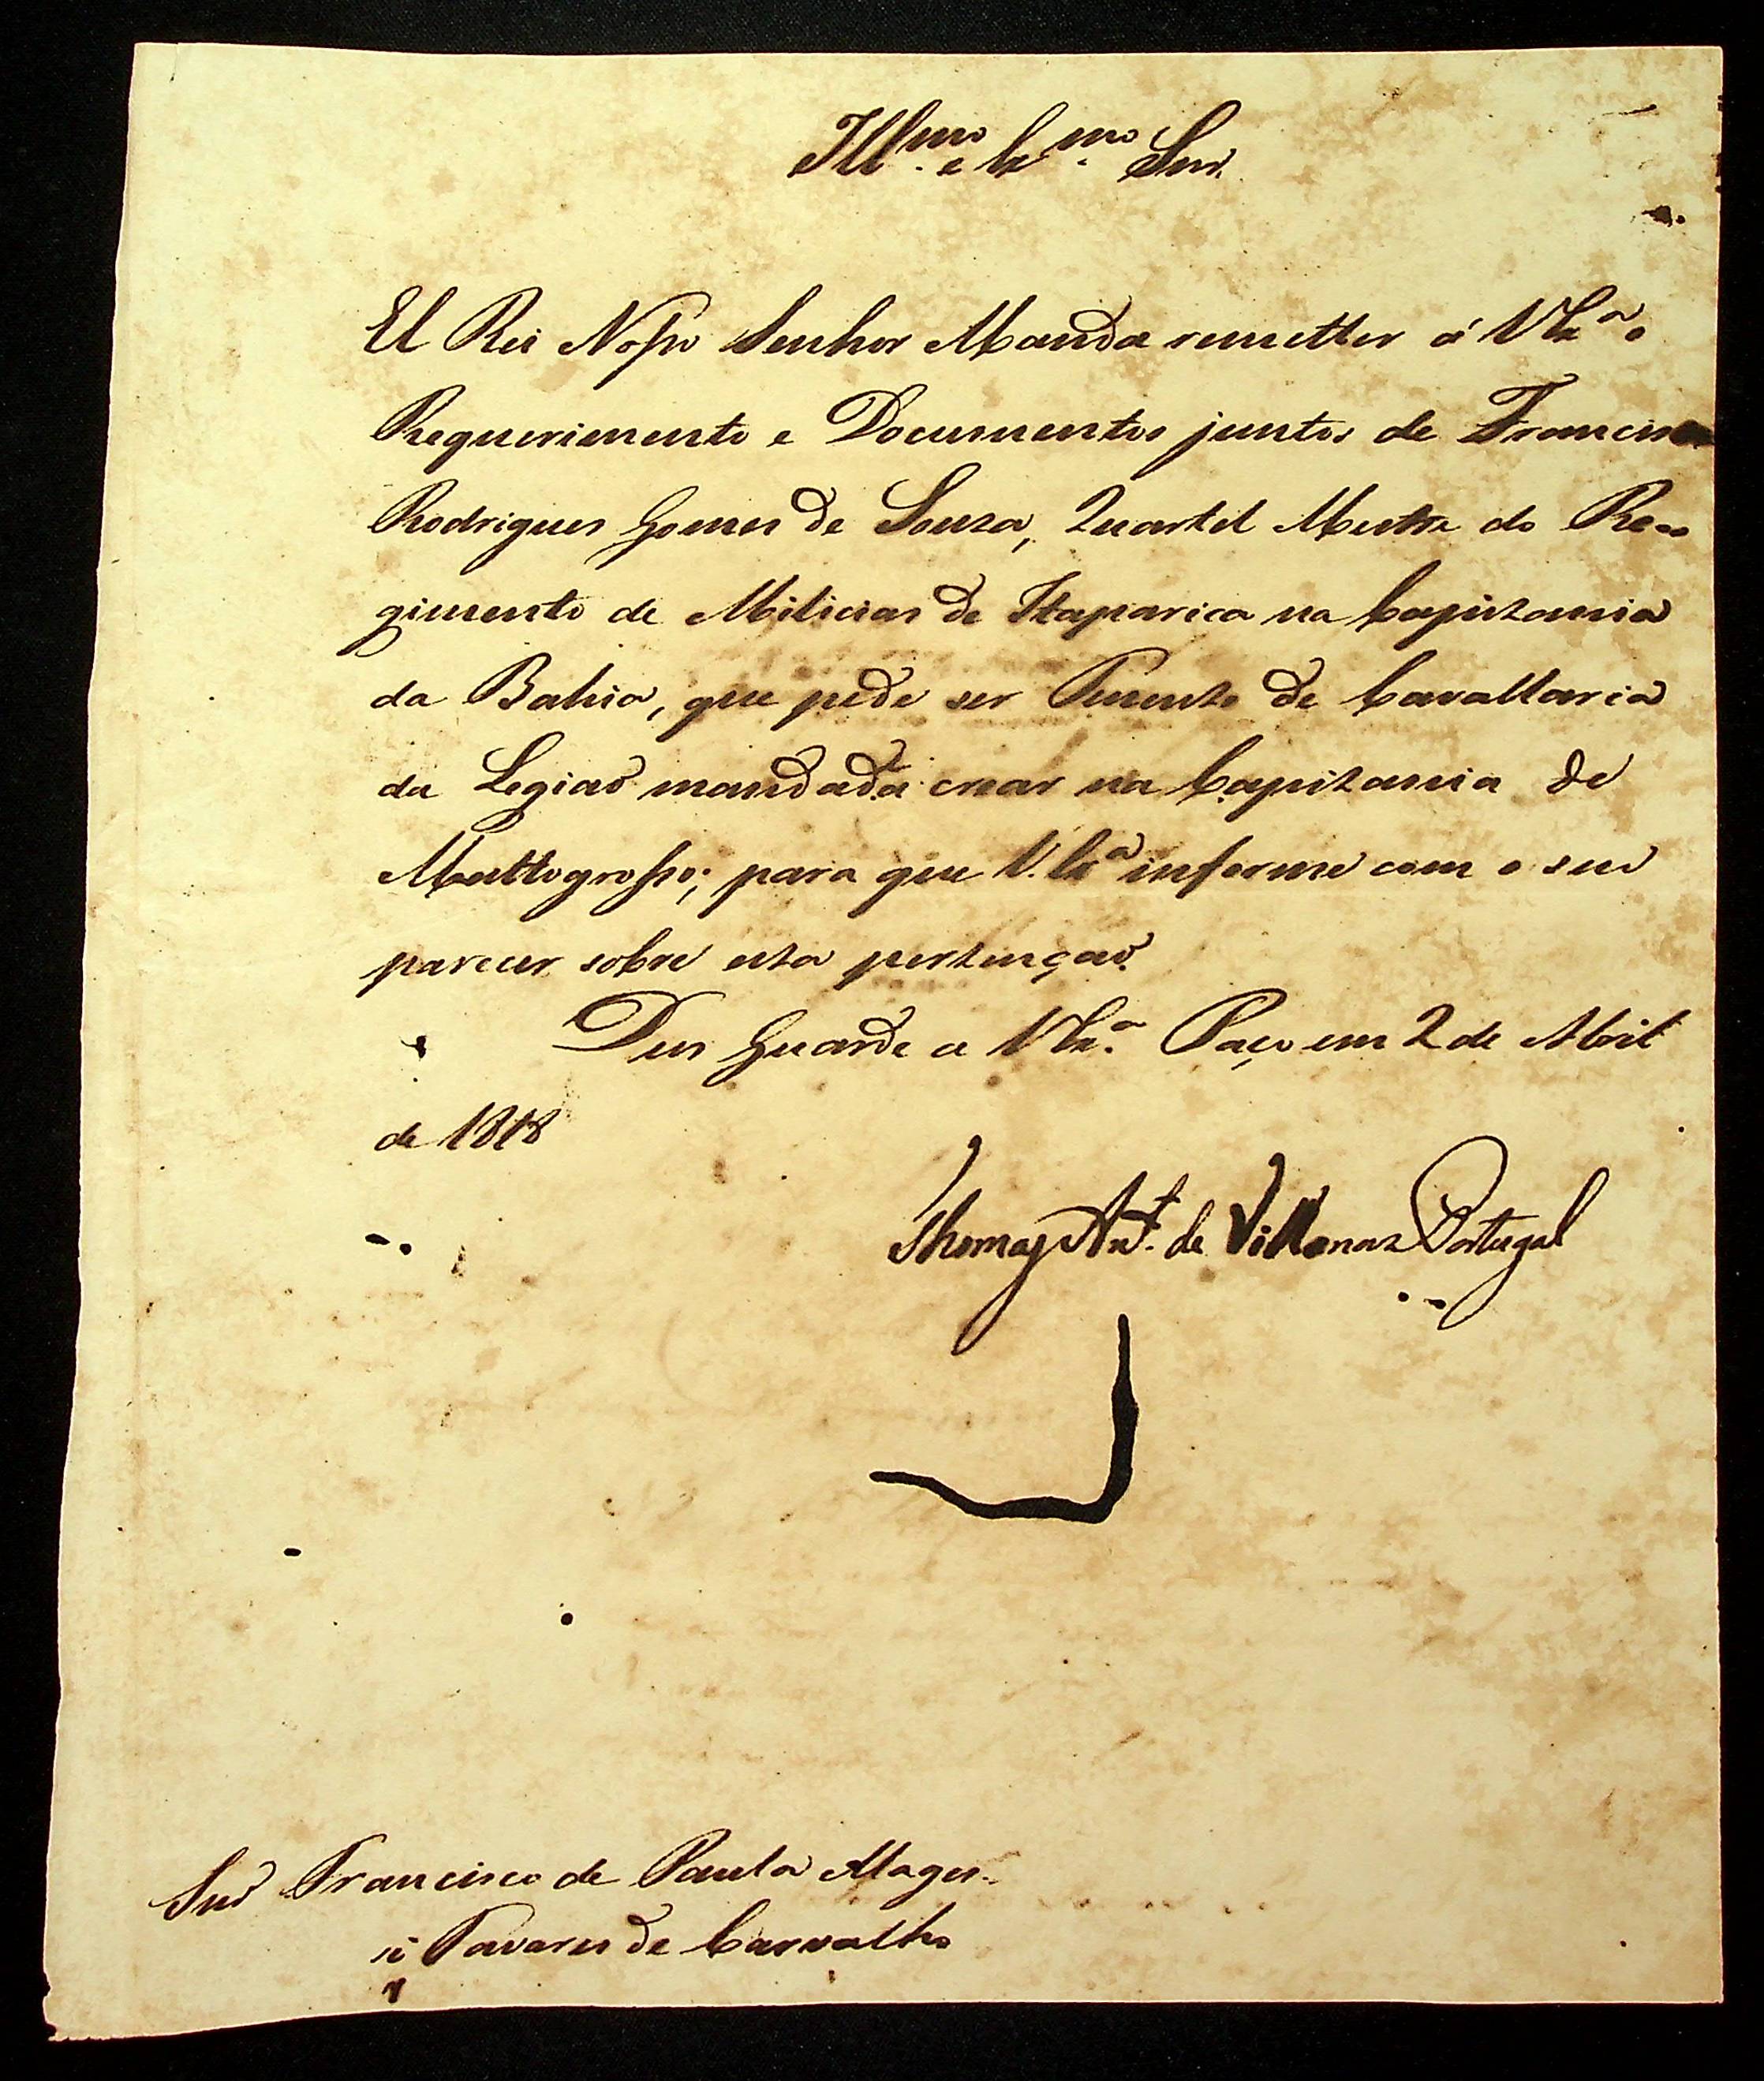 Ill.mo e Ex.mo Snr.
El Rei Nosso Senhor Manda remetter á VEx.a o
Requerimento e Documentos juntos de Francisco
Rodrigues Gomes de Souza, Quartel Mestre do Re-
gimento de Milicias de Itaparica na Capitania
da Bahia, que pede ser Tenente de Cavallaria
da Legiaõ mandada crear na Capitania de
Mattogrosso; para que V.Ex.a informe com o seu
parecer sobre esta pertençaõ.
Deos Guarde a VEx.a Paço em 2 de Abril
de 1818
Thomaz Ant.o de Villanova Portugal
Snr Francisco de Paula Mages-
si Tavares de Carvalho